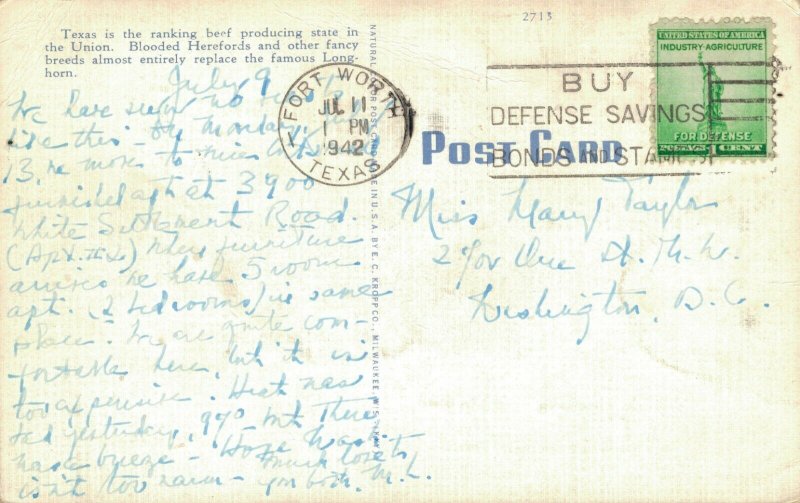 Texas is the ranking beef producing state in
the Union. Blooded Herefords and other fancy
breeds almost entirely replace the famous Long-
horn.
2713
July 9
We have seen no
like this - On Monday, July
13, we move to nice
furnished apt at 3900
White Settlement Road.
(Apt. #2) When furniture
arrives we have 5 room
apt. (2 bedrooms) in same
place. We are quite com-
fortable here, but it is
too expensive. Heat was
bad yesterday, 97° but there
was breeze - Hope Wash.
isn't too warm -
Much love to
you both. M.L.
FORT WORTH
JUL 11
1 PM
1942
TEXAS
BUY
DEFENSE SAVINGS
BONDS AND STAMPS
UNITED STATES OF AMERICA
INDUSTRY·AGRICULTURE
FOR DEFENSE
POSTAGE 1 CENT
POST CARD
Miss Mary Taylor
St. N.W.
Washington, D.C.
MADE IN U.S.A. BY E. C. KROPP CO., MILWAUKEE, WIS.